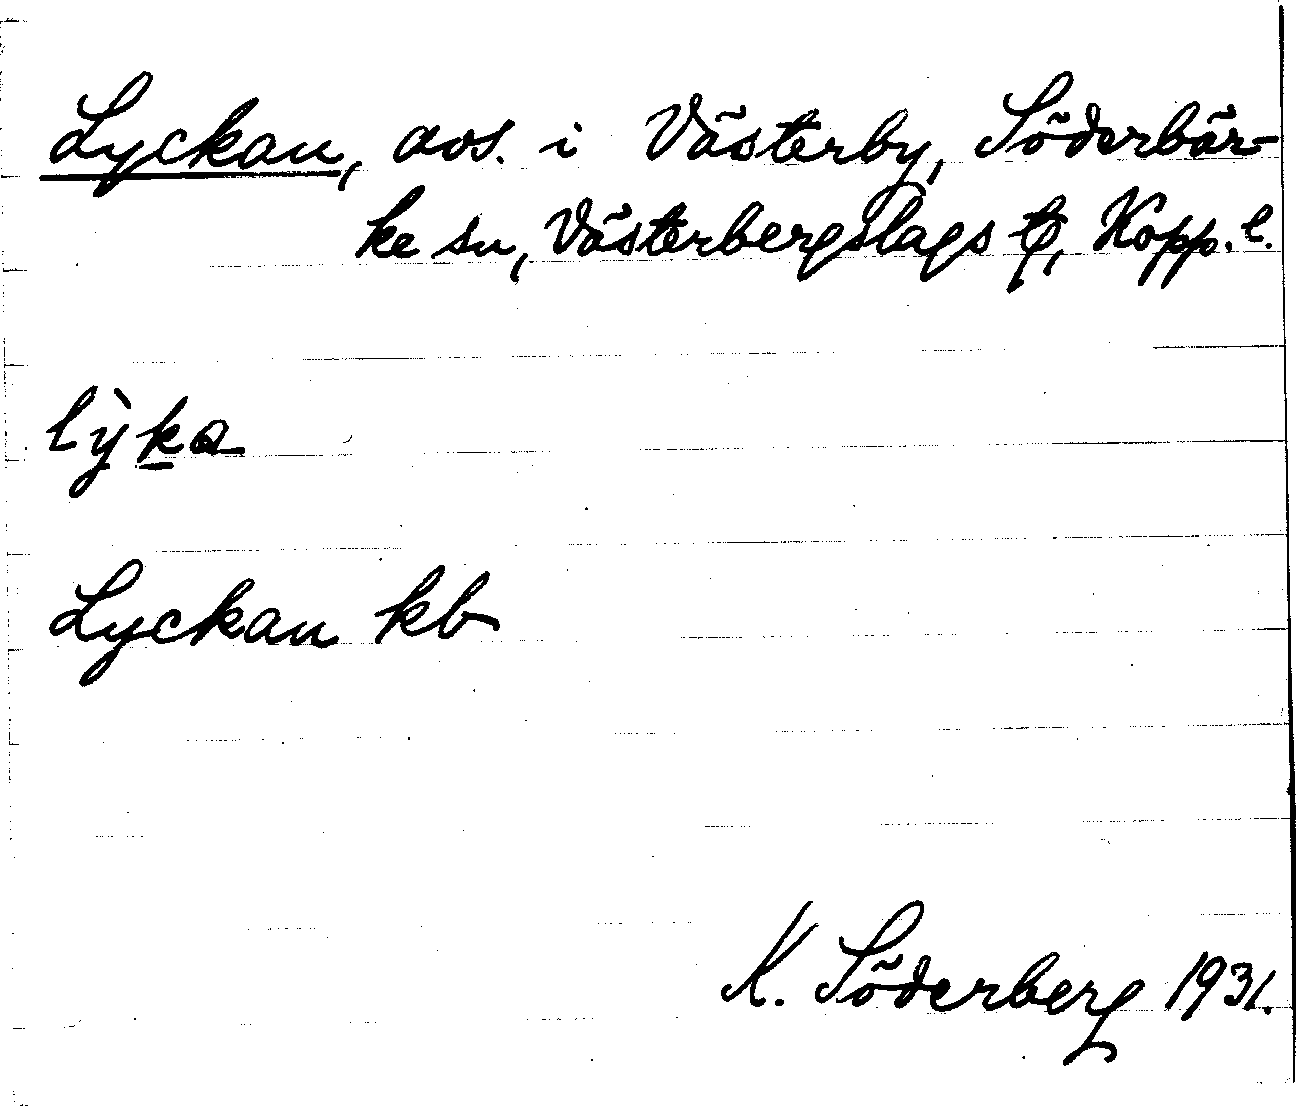 Lyckan, avs. i Västerby, Söderbär-
ke sn, Västerbergslags tg, Kopp. l.
lỳka
Lyckan kb
K. Söderberg 1931.